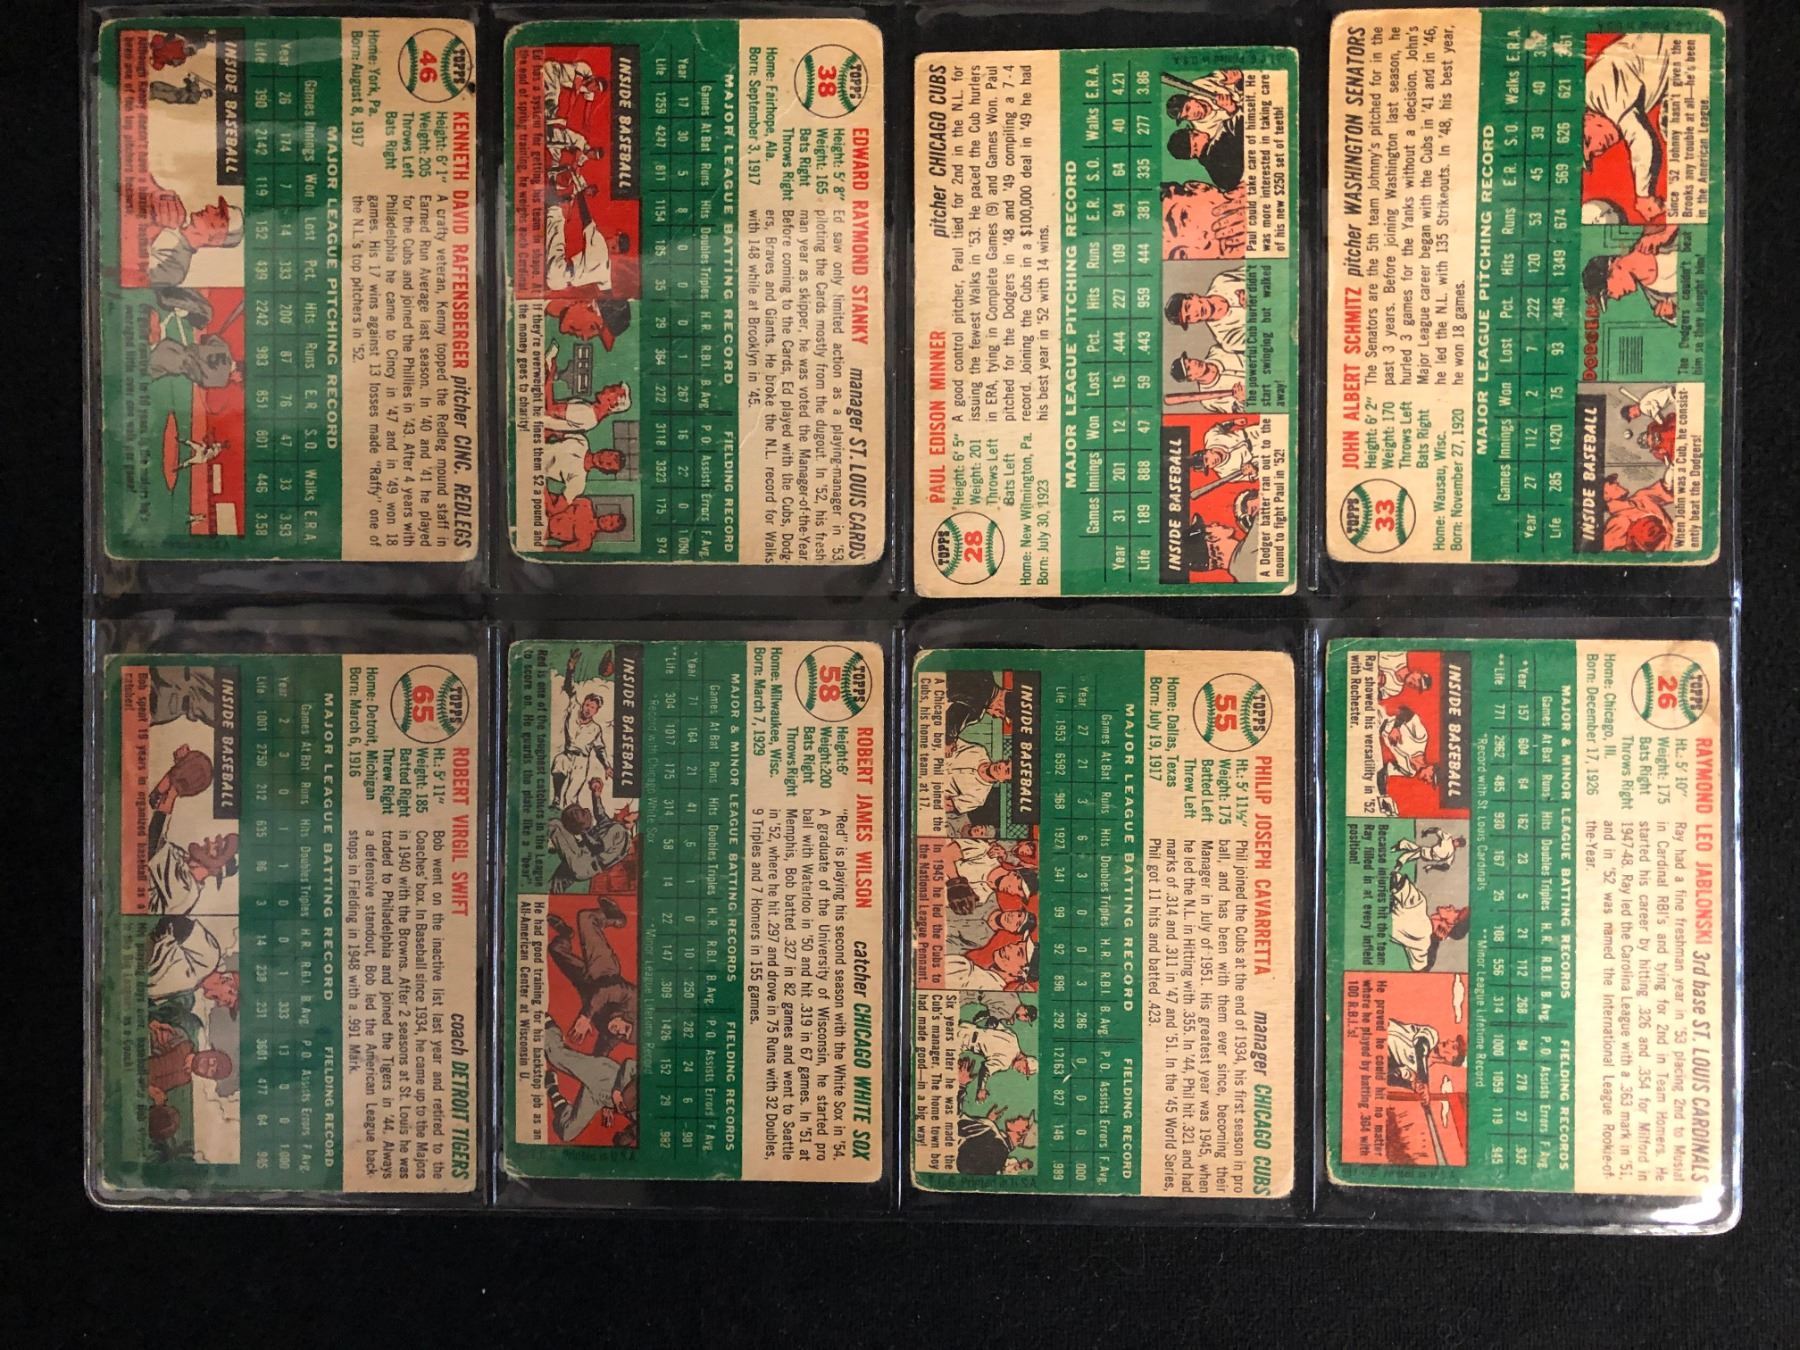 TOPPS
46
KENNETH DAVID RAFFENSBERGER pitcher CINC. REDLEGS
Height: 6' 1"
Weight: 205
Throws Left
Bats Right
Home: York, Pa.
Born: August 8, 1917
A crafty veteran, Kenny topped the Redleg mound staff in
Earned Run Average last season. In '40 and '41 he played
for the Cubs and joined the Phillies in '43. After 4 years with
Philadelphia he came to Cincy in '47 and in '49 won 18
games. His 17 wins against 13 losses made "Raffy" one of
the N.L.'s top pitchers in '52.
MAJOR LEAGUE PITCHING RECORD
Games Innings Won Lost Pct. Hits Runs E.R. S.O. Walks E.R.A.
Year 26 174 7 14 .333 200 87 76 47 33 3.93
Life 390 2142 119 152 .439 2242 983 851 801 446 3.58
INSIDE BASEBALL
TOPPS
38
EDWARD RAYMOND STANKY manager ST. LOUIS CARDS
Height: 5' 8"
Weight: 165
Bats Right
Throws Right
Home: Fairhope, Ala.
Born: September 3, 1917
Ed saw only limited action as a playing-manager in '53,
piloting the Cards mostly from the dugout. In '52, his fresh-
man year as skipper, he was voted the Manager-of-the-Year.
Before coming to the Cards, Ed played with the Cubs, Dodg-
ers, Braves and Giants. He broke the N.L. record for Walks
with 148 while at Brooklyn in '45.
MAJOR LEAGUE BATTING RECORD FIELDING RECORD
Games At Bat Runs Hits Doubles Triples H.R. R.B.I. B. Avg. P.O. Assists Errors F. Avg.
Year 17 30 5 8 0 0 0 1 .267 16 22 0 1.000
Life 1259 4247 811 1154 185 35 29 364 .272 3118 3323 175 .974
INSIDE BASEBALL
Ed has a system for getting his team in shape. At
the end of spring training, he weighs each Cardinal.
If they're overweight he fines them $2 a pound and
the money goes to charity!
TOPPS
28
PAUL EDISON MINNER pitcher CHICAGO CUBS
Height: 6' 5"
Weight: 201
Throws Left
Bats Left
Home: New Wilmington, Pa.
Born: July 30, 1923
A good control pitcher, Paul tied for 2nd in the N.L. for
issuing the fewest Walks in '53. He paced the Cub hurlers
in ERA, tying in Complete Games (9) and Games Won. Paul
pitched for the Dodgers in '48 and '49 compiling a 7-4
record. Joining the Cubs in a $100,000 deal in '49 he had
his best year in '52 with 14 wins.
MAJOR LEAGUE PITCHING RECORD
Games Innings Won Lost Pct. Hits Runs E.R. S.O. Walks E.R.A.
Year 31 201 12 15 .444 227 109 94 64 40 4.21
Life 189 888 47 59 .443 959 444 381 335 277 3.86
INSIDE BASEBALL
A Dodger batter ran out to the
mound to fight Paul in '52!
The powerful Cub hurler didn't
start swinging but walked
away!
Paul could take care of himself. He
was more interested in taking care
of his new $250 set of teeth!
TOPPS
33
JOHN ALBERT SCHMITZ pitcher WASHINGTON SENATORS
Height: 6' 2"
Weight: 170
Throws Left
Bats Right
Home: Wausau, Wisc.
Born: November 27, 1920
The Senators are the 5th team Johnny's pitched for in the
past 3 years. Before joining Washington last season, he
hurled 3 games for the Yanks without a decision. John's
Major League career began with the Cubs in '41 and in '46,
he led the N.L. with 135 Strikeouts. In '48, his best year,
he won 18 games.
MAJOR LEAGUE PITCHING RECORD
Games Innings Won Lost Pct. Hits Runs E.R. S.O. Walks E.R.A.
Year 27 112 2 7 .222 120 53 45 39 40
Life 285 1420 75 93 .446 1349 674 569 626 621
INSIDE BASEBALL
When John was a Cub, he consist-
ently beat the Dodgers!
DODGERS
The Dodgers couldn't beat
him so they bought him!
Since '52 Johnny hasn't given the
Brooks any trouble at all—he's been
in the American League.
TOPPS
65
ROBERT VIRGIL SWIFT coach DETROIT TIGERS
Ht.: 5' 11"
Weight: 185
Batted Right
Threw Right
Home: Detroit, Michigan
Born: March 6, 1916
Bob went on the inactive list last year and retired to the
Coaches' box. In Baseball since 1934, he came up to the Majors
in 1940 with the Browns. After 2 seasons at St. Louis he was
traded to Philadelphia and joined the Tigers in '44. Always
a defensive standout, Bob led the American League back-
stops in Fielding in 1948 with a .991 Mark.
MAJOR LEAGUE BATTING RECORD FIELDING RECORD
Games At Bat Runs Hits Doubles Triples H.R. R.B.I. B. Avg. P.O. Assists Errors F. Avg.
Year 2 3 0 1 1 0 0 1 .333 13 0 0 1.000
Life 1001 2750 212 635 86 3 14 238 .231 3681 477 64 .985
INSIDE BASEBALL
Bob spent 19 years in organized baseball as a
catcher!
TOPPS
58
ROBERT JAMES WILSON catcher CHICAGO WHITE SOX
Height: 6'
Weight: 200
Bats Right
Throws Right
Home: Milwaukee, Wisc.
Born: March 7, 1929
"Red" is playing his second season with the White Sox in '54.
A graduate of the University of Wisconsin, he started pro
ball with Waterloo in '50 and hit .319 in 67 games. In '51 at
Memphis, Bob batted .327 in 82 games and went to Seattle
in '52, where he hit .297 and drove in 75 Runs with 32 Doubles,
9 Triples and 7 Homers in 155 games.
MAJOR & MINOR LEAGUE BATTING RECORDS FIELDING RECORDS
Games At Bat Runs Hits Doubles Triples H.R. R.B.I. B. Avg. P.O. Assists Errors F. Avg.
*Year 71 164 21 41 6 1 0 10 .250 282 24 6 .981
**Life 304 1017 175 314 58 14 22 147 .309 1426 152 29 .982
*Record with Chicago White Sox **Minor League Lifetime Record
INSIDE BASEBALL
Red is one of the toughest catchers in the League
to score on. He guards the plate like a "bear"
He had good training for his backstop job as an
All-American Center at Wisconsin U.
TOPPS
55
PHILIP JOSEPH CAVARRETTA manager CHICAGO CUBS
Ht.: 5' 11½"
Weight: 175
Batted Left
Threw Left
Home: Dallas, Texas
Born: July 19, 1917
Phil joined the Cubs at the end of 1934, his first season in pro
ball, and has been with them ever since, becoming their
Manager in July of 1951. His greatest year was 1945, when
he led the N.L. in Hitting with .355. In '44, Phil hit .321 and had
marks of .314 and .311 in '47 and '51. In the '45 World Series,
Phil got 11 hits and batted .423.
MAJOR LEAGUE BATTING RECORD FIELDING RECORD
Games At Bat Runs Hits Doubles Triples H.R. R.B.I. B. Avg. P.O. Assists Errors F. Avg.
Year 27 21 3 6 3 0 0 3 .286 0 0 0 .000
Life 1953 6592 968 1927 341 99 92 896 .292 12163 827 146 .989
INSIDE BASEBALL
A Chicago boy, Phil joined the
Cubs, his home team, at 17.
In 1945 he led the Cubs to
the National League Pennant.
Six years later he was made the
Cub's manager. The home town boy
had made good—in a big way!
TOPPS
26
RAYMOND LEO JABLONSKI 3rd base ST. LOUIS CARDINALS
Ht.: 5' 10"
Weight: 175
Bats Right
Throws Right
Home: Chicago, Ill.
Born: December 17, 1926
Ray had a fine freshman year in '53 placing 2nd to Musial
in Cardinal RBI's and tying for 2nd in Team Homers. He
started his career by hitting .326 and .354 for Milford in
1947-48. Ray led the Carolina League with a .363 mark in '51,
and in '52 was named the International League Rookie-of-
the-Year.
MAJOR & MINOR LEAGUE BATTING RECORDS FIELDING RECORDS
Games At Bat Runs Hits Doubles Triples H.R. R.B.I. B. Avg. P.O. Assists Errors F. Avg.
Year* 157 604 64 162 23 5 21 112 .268 94 278 27 .932
**Life 771 2962 485 930 167 25 108 556 .314 1000 1059 119 .945
*Record with St. Louis Cardinals **Minor League Lifetime Record
INSIDE BASEBALL
Ray showed his versatility in '52
with Rochester.
Because injuries hit the team
Ray filled in at every infield
position!
He proved he could hit no matter
where he played by batting .304 with
100 R.B.I.'s!